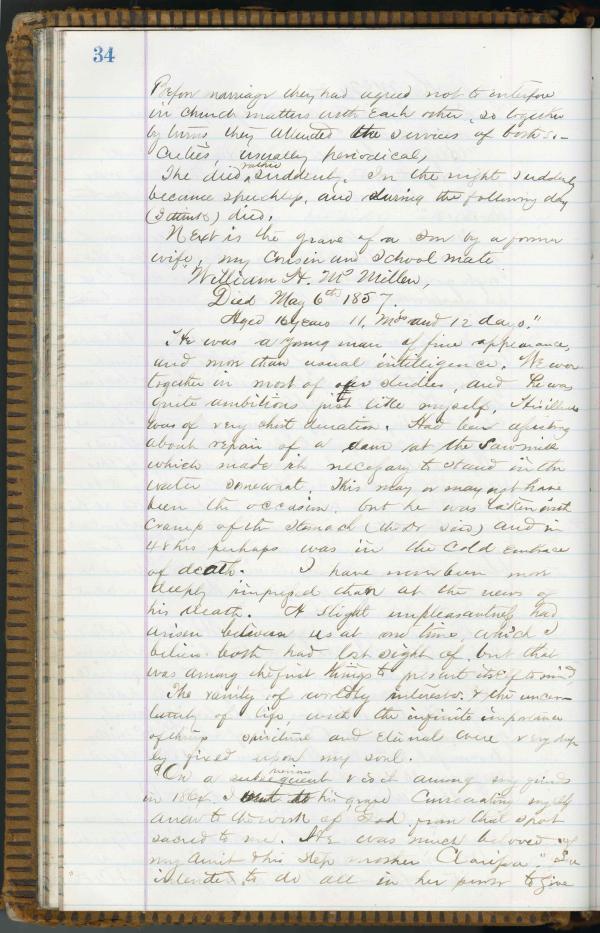 34
Before marriage they had agreed not to interfere
in Church matters with Each other, so together
by turns they attended the services of both so-
cieties, usually periodical,
The died rather suddent. In the night suddenly
became speechless, and during the following day
(I think) died.
Next is the grave of a Son by a former
wife, my Cousin and School mate
"William H. McMillen,
Died May 6th 1857.
Aged 16 years 11, mos and 12 days."
He was a young man of fine appearance,
and more than usual intelligence. We were
together in most of our studies, and He was
quite ambitious just little myself. His illness
was of very short duration. Had been assisting
about repair of a dam at the Sawmill
which made it necessary to stand in the
water somewhat, This may or may not have
been the occasion, but he was taken with
Cramp of the Stomach (the Dr said) and in
48 hrs perhaps was in the Cold embrace
of death. I have never been more
deeply impressed than at the news of
his death. A slight unpleasantness had
arisen between us at one time, which I
believe both had lost sight of, but that
was among the first things to present itself to mind
The vanity of worldly interests & the uncer-
tainty of life, with the infinite importance
of things spiritual and Eternal were very deep
ly fixed upon my soul.
On a subsequent visit among my friends
in 1864 I went to his grave Consecrating myself
anew to the work of God from that spot
sacred to me. He was much beloved of
my Aunt & his step mother "Clarissa." She
intended to do all in her power to give